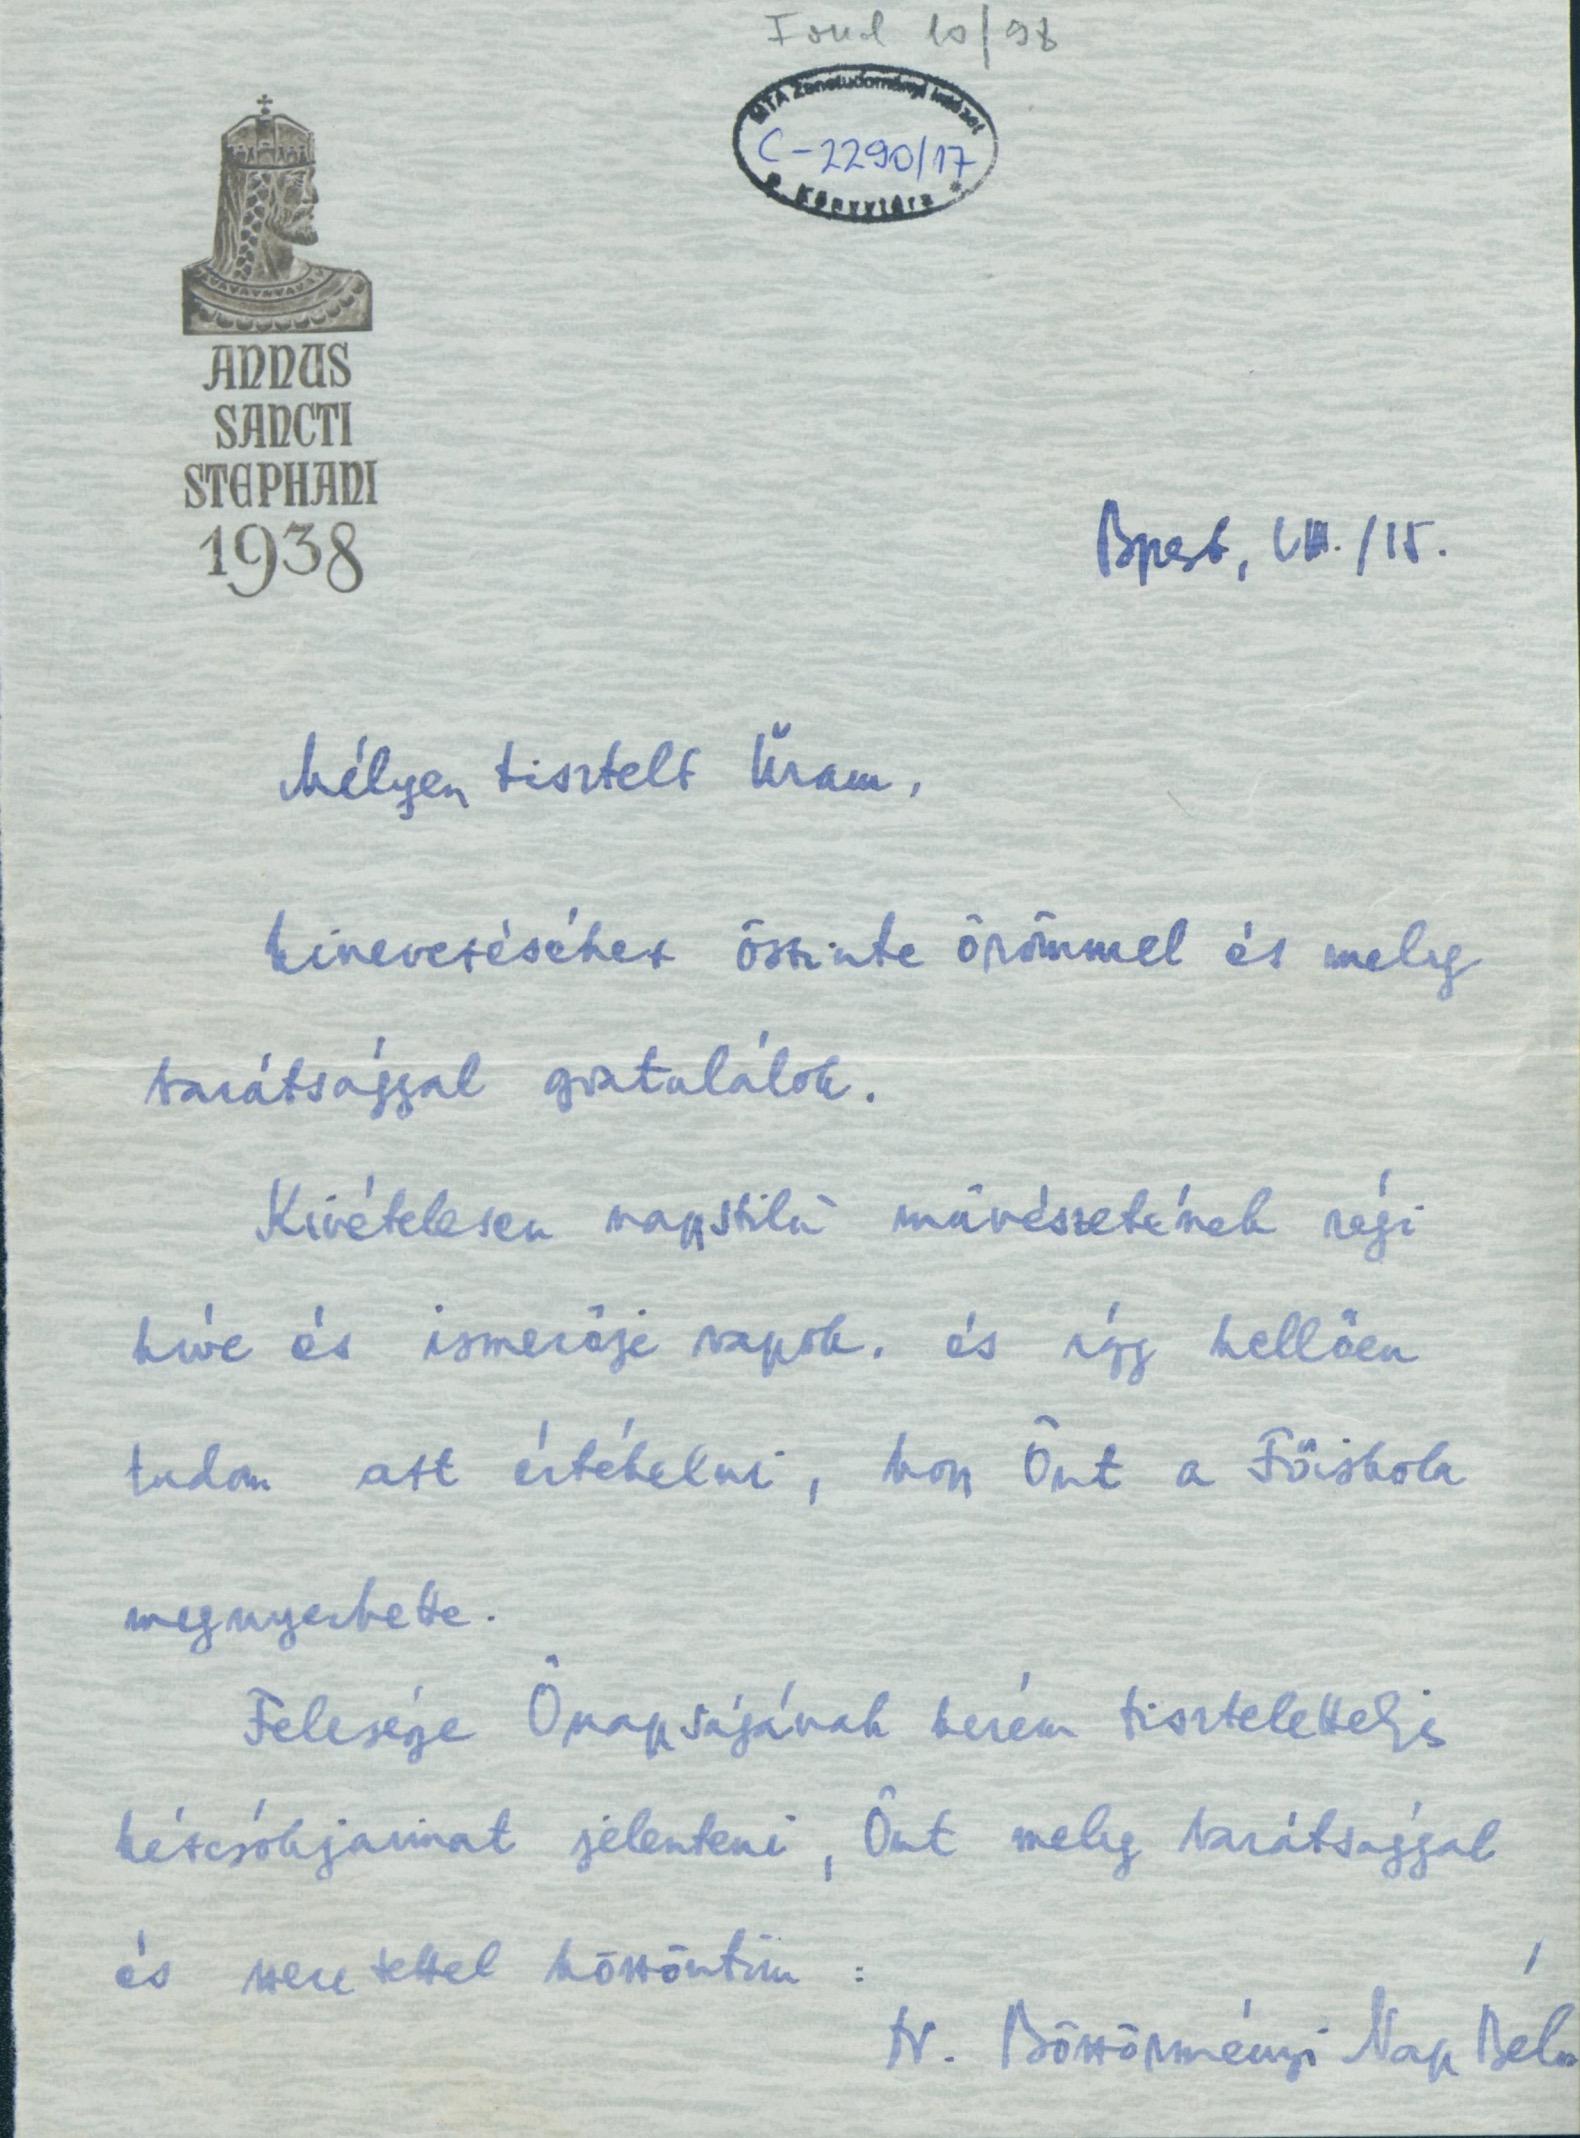 Fond 10/98
MTA Zenetudományi Intézet
C-2290/17
Könyvtára
ANNUS
SANCTI
STEPHANI
1938
Bpest, VIII./15.
Mélyen tisztelt Uram,
kinevezéséhez őszinte örömmel és meleg
barátsággal gratulálok.
Kivételesen nagystilű művészetének régi
híve és ismerője vagyok. és így kellően
tudom azt értékelni, hogy Önt a Főiskola
megnyerhette.
Felesége Őnagyságának kérem tiszteletteljes
kézcsókjaimat jelenteni, Önt meleg barátsággal
és szeretettel köszöntöm :
dr. Böszörményi Nagy Béla